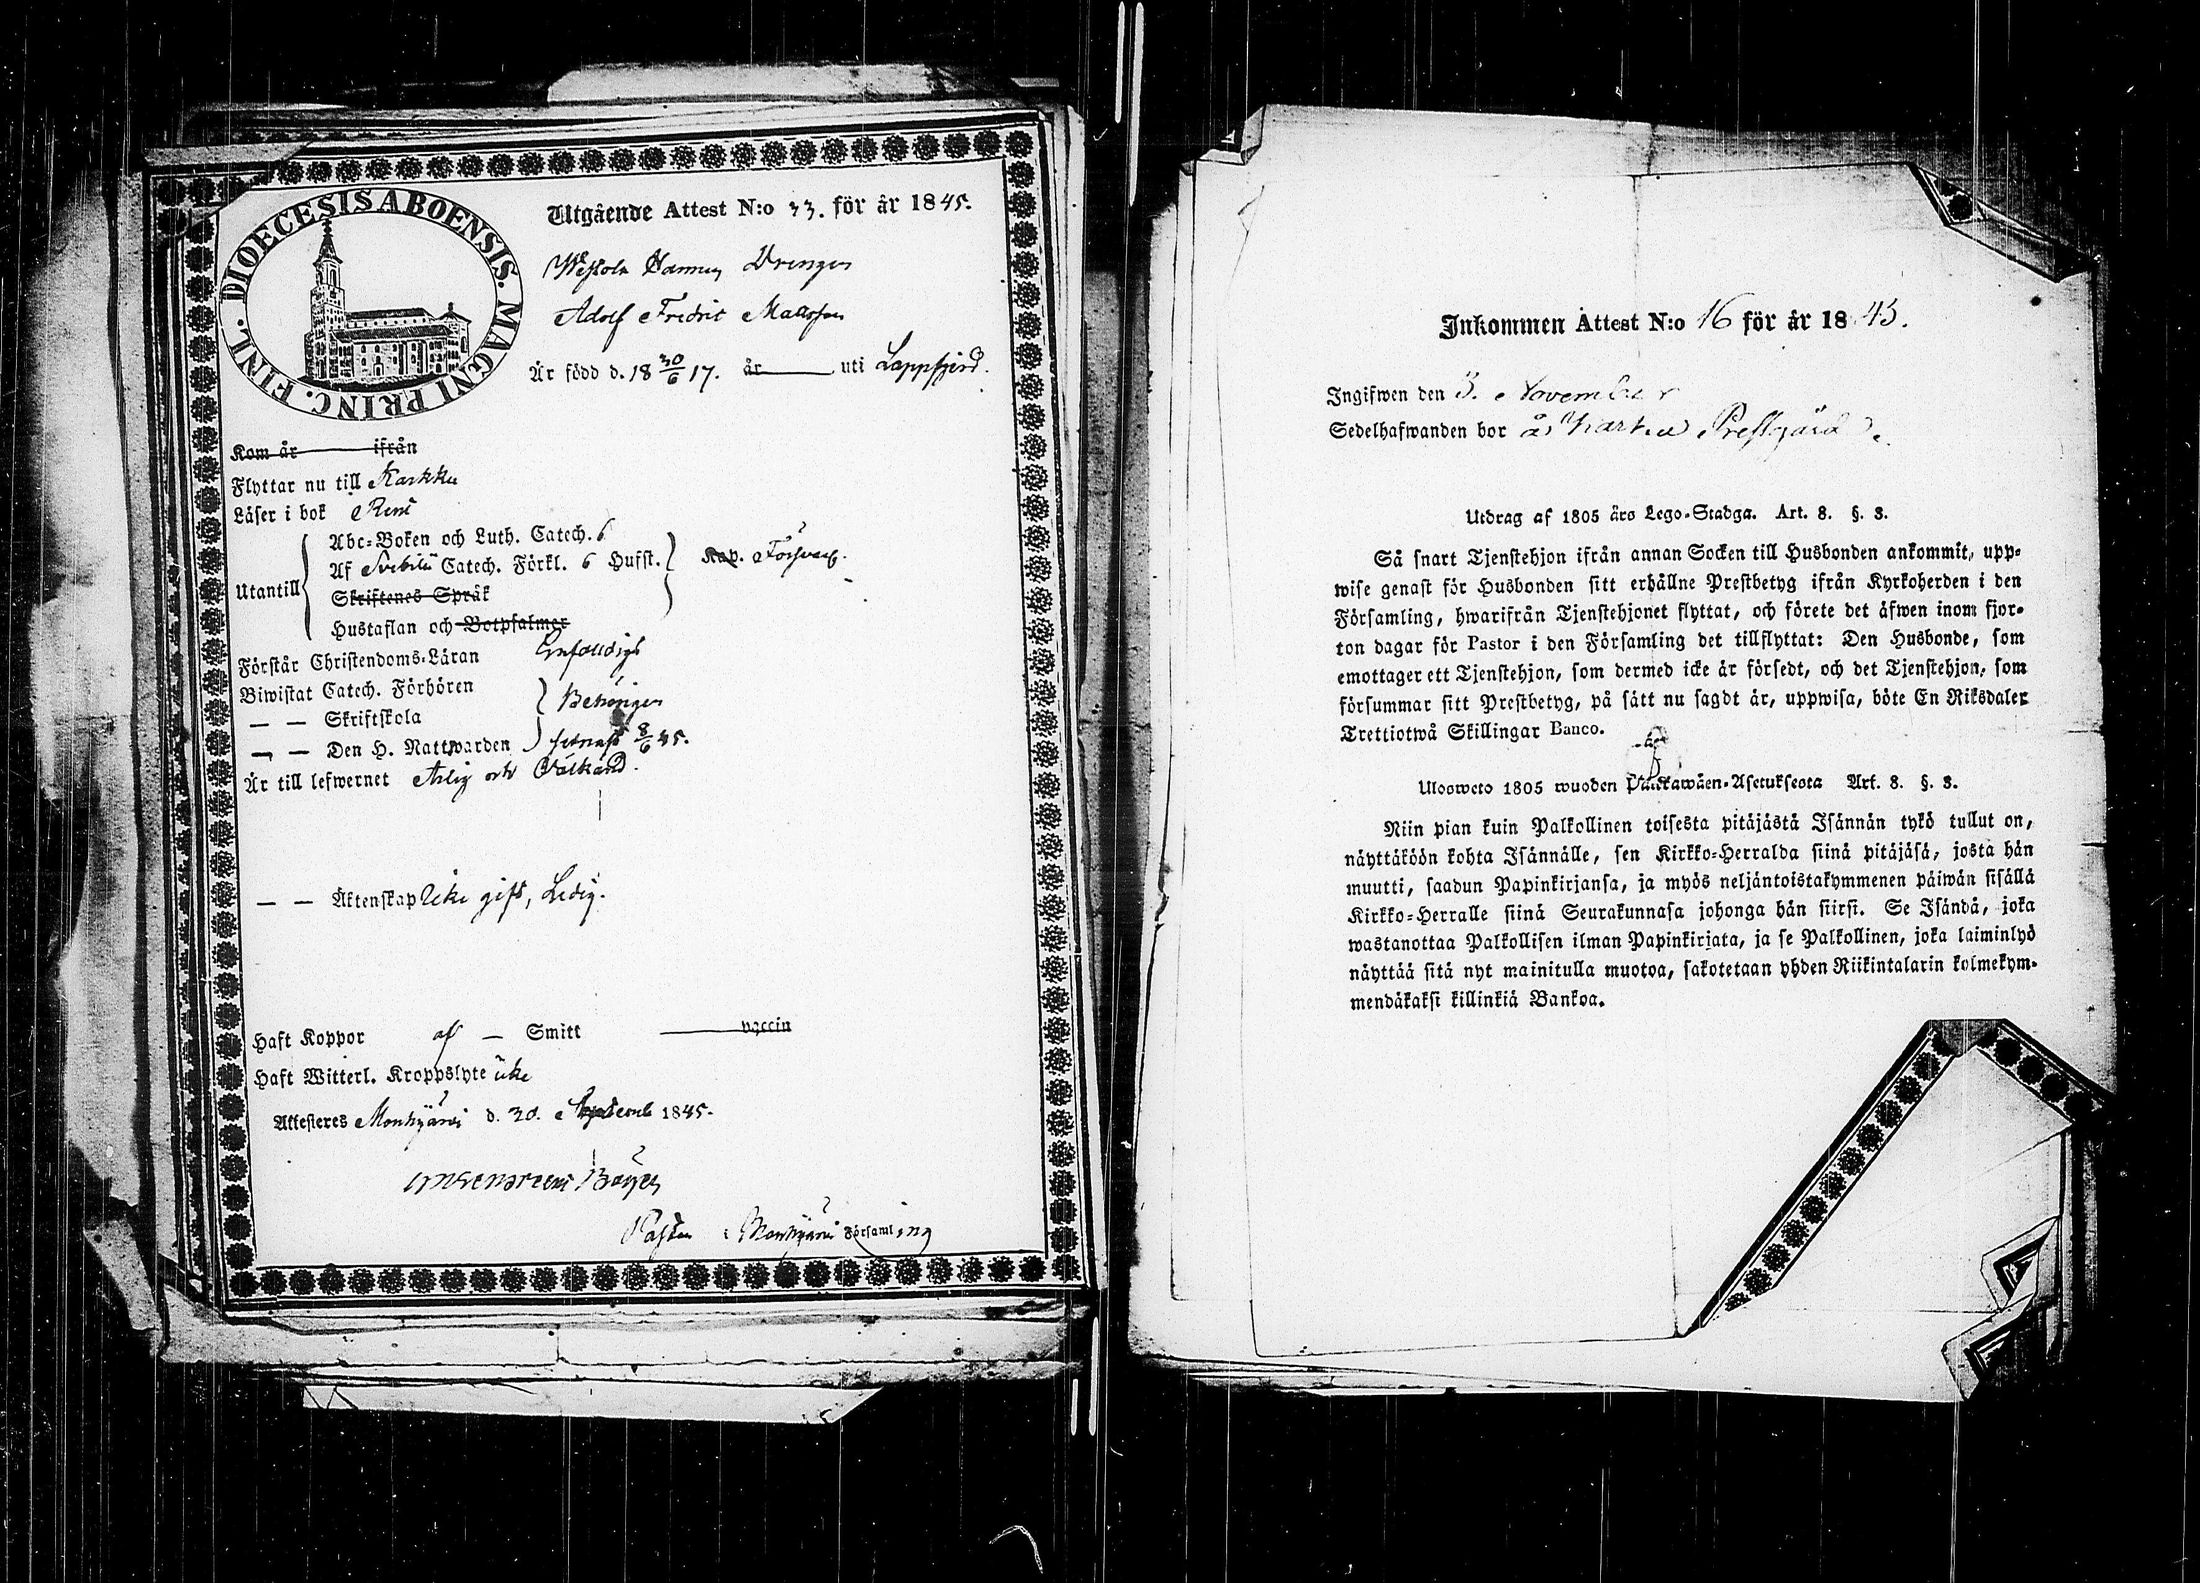 DIOECESIS ABOENSIS. MAGNI PRINC. FINL.
Utgående Attest N:o 33. för år 1845.
Drengen
Adolf Fredric
Är född d. 18 30/6 17. år uti Lappfjerd.
Kom år ifrån
Flyttar nu till Karkku
Läser i bok Rent
Abc-Boken och Luth. Catech. 6
Af Svebilii Catech. Förkl. 6 Hufst. Kap. Försvarl.
Utantill
Skriftenes Språk
Hustaflan och Botpsalmer
Förstår Christendoms-Läran Enfaldigt
Biwistat Catech. Förhören
— — Skriftskola Behörigen
— — Den H. Nattwarden sednast 8/6 45.
Är till lefwernet Ärlig och Välkänd.
— — Äktenskap icke gift, Ledig.
Haft Koppor af — Smitt vaccin
Haft Witterl. Kroppslyte icke
Attesteres Mouhijärvi d. 30. Septemb 1845.
Pastor i Mouhijärvi Församling
Inkommen Attest N:o 16 för år 1845.
Ingifwen den 3. November
Sedelhafwanden bor å Karku Prestgård
Utdrag af 1805 års Lego-Stadga. Art. 8. §. 3.
Så snart Tjenstehjon ifrån annan Socken till Husbonden ankommit, upp-
wise genast för Husbonden sitt erhållne Prestbetyg ifrån Kyrkoherden i den
Församling, hwarifrån Tjenstehjonet flyttat, och förete det äfwen inom fjor-
ton dagar för Pastor i den Församling det tillflyttat: Den Husbonde, som
emottager ett Tjenstehjon, som dermed icke är försedt, och det Tjenstehjon, som
försummar sitt Prestbetyg, på sätt nu sagdt är, uppwisa, böte En Riksdaler
Trettiotwå Skillingar Banco.
Ulosweto 1805 wuoden Palkawäen-Asetuksesta Art. 8. §. 3.
Niin pian kuin Palkollinen toisesta pitäjästä Isännän tykö tullut on,
näyttäköön kohta Isännälle, sen Kirkko-Herralda siinä pitäjäsä, josta hän
muutti, saadun Papinkirjansa, ja myös neljäntoistakymmenen päiwän sisällä
Kirkko-Herralle siinä Seurakunnasa johonga hän siirsi. Se Isändä, joka
wastanottaa Palkollisen ilman Papinkirjata, ja se Palkollinen, joka laiminlyö
näyttää sitä nyt mainitulla muotoa, sakotetaan yhden Riikintalarin kolmekym-
mendäkaksi killinkiä Bankoa.